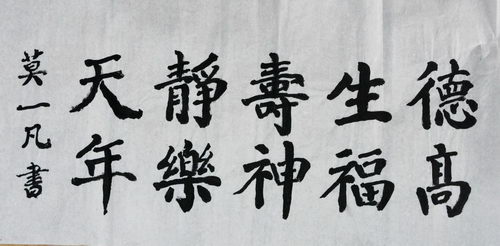 德高
生福
壽神
靜樂
天年
莫一凡書